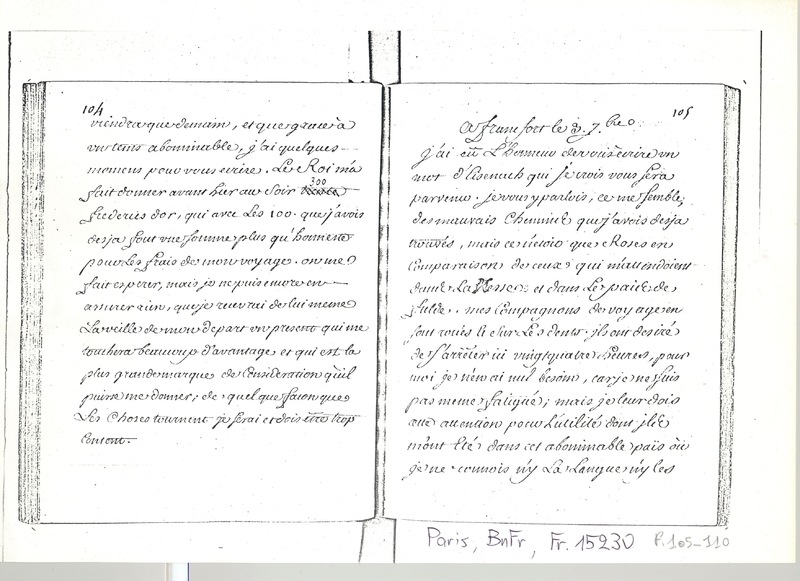 104
viendra que demain, et que grace à
un tems abominable, j'ai quelques
momens pour vous ecrire. Le Roi m'a
fait donner avant hier au soir 300
frederics d'or, qui avec Les 100. que j'avois
desja font une somme plus qu'honnete
pour Les frais de mon voyage. on me
fait esperer, mais je ne puis encore en
assurer rien, que je recevrai de lui meme
La veille de mon depart un present qui me
touchera beaucoup d'avantage et qui est la
plus grande marque de Consideration qu'il
puisse me donner; de quelque façon que
Les Choses tournent je serai et dois être trop
Content.
105
A francfort le 3. 7.bre
j'ai eu L'honneur de vous ecrire un
mot d'Eisenach qui je crois vous sera
parvenu. je vous y parlois, ce me semble
des mauvais Chemins que j'avois desja
trouvés, mais ce n'etoit que Roses en
Comparaison de ceux qui m'attendoient
dans La Hesse et dans Le païs de
fulde. mes Compagnons de voyage en
sont roués et sur Les dents. ils ont desiré
de s'arrêter ici vingt quatre heures, pour
moi je n'en ai nul besoin, car je ne suis
pas meme fatigué; mais je leur dois
cette attention pour L'utilité dont ils
m'ont eté dans cet abominable païs où
je ne connois n'y La Langue n'y les
Paris, BnFr, Fr. 15230 P. 105-110